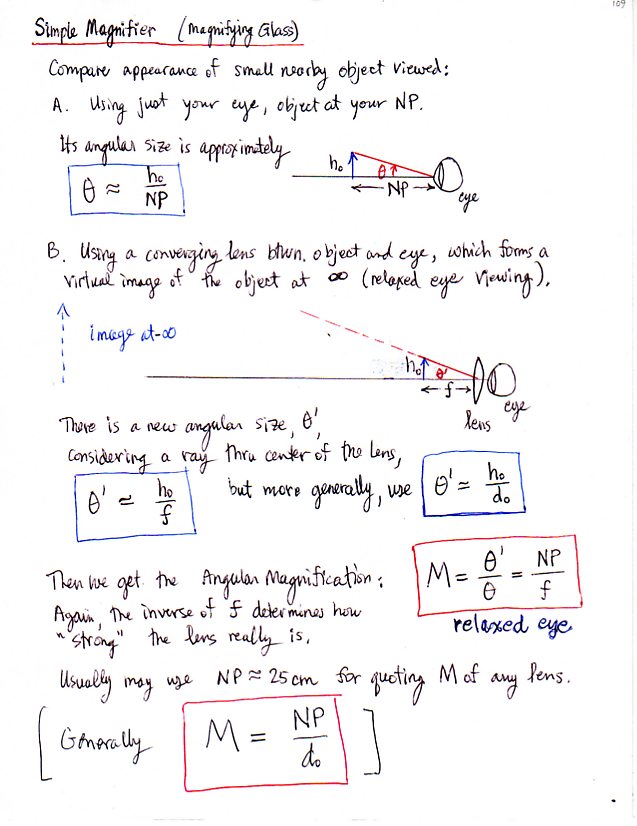 109
Simple Magnifier (Magnifying Glass)
Compare appearance of small nearby object viewed:
A. Using just your eye, object at your NP.
Its angular size is approximately
θ ≈ h₀/NP
h₀ θ
NP
eye
B. Using a converging lens btwn. object and eye, which forms a
virtual image of the object at ∞ (relaxed eye viewing).
image at -∞
h₀ θ'
f
lens eye
There is a new angular size, θ',
considering a ray thru center of the lens,
θ' ≃ h₀/f
but more generally, use θ' ≃ h₀/d₀
Then we get the Angular Magnification:
M = θ'/θ = NP/f
Again, the inverse of f determines how
"strong" the lens really is.
relaxed eye
Usually may use NP ≈ 25 cm for quoting M of any lens.
[Generally M = NP/d₀]